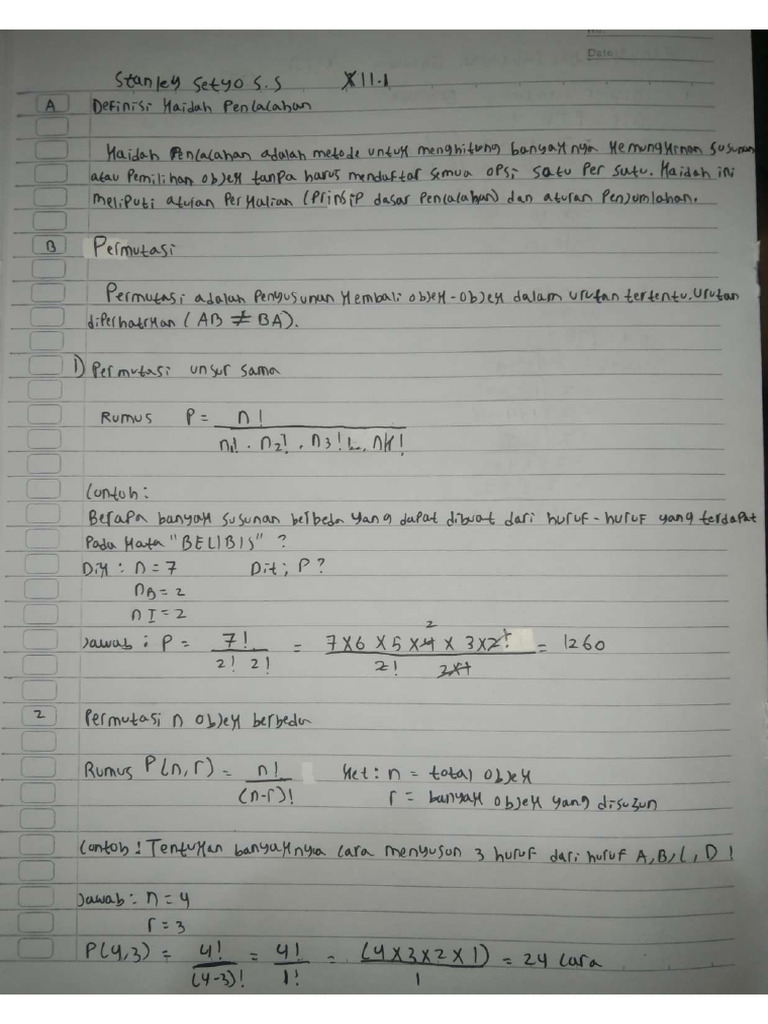 No.
Date
Stanley Setyo S.S XII.1
A Definisi Kaidah Pencacahan
Kaidah Pencacahan adalah metode untuk menghitung banyaknya kemungkinan susunan
atau Pemilihan objek tanpa harus mendaftar semua opsi satu per satu. Kaidah ini
meliputi aturan Perkalian (Prinsip dasar Pencacahan) dan aturan Penjumlahan.
B Permutasi
Permutasi adalah Penyusunan kembali objek-objek dalam urutan tertentu. Urutan
diperhatikan (AB ≠ BA).
1) Permutasi unsur sama
Rumus P = n! / n1! . n2! . n3! ... nk!
Contoh:
Berapa banyak susunan berbeda yang dapat dibuat dari huruf-huruf yang terdapat
Pada kata "BELIBIS" ?
Dik : n = 7 Dit ; P?
nB = 2
n I = 2
Jawab : P = 7! / 2! 2! = 7 x 6 x 5 x 4 x 3 x 2! / 2! 2x1 = 1260
2 Permutasi n objek berbeda
Rumus P(n, r) = n! / (n-r)! Ket : n = total objek
r = banyak objek yang disusun
Contoh : Tentukan banyaknya cara menyusun 3 huruf dari huruf A, B, C, D !
Jawab : n = 4
r = 3
P(4,3) = 4! / (4-3)! = 4! / 1! = (4 x 3 x 2 x 1) / 1 = 24 cara